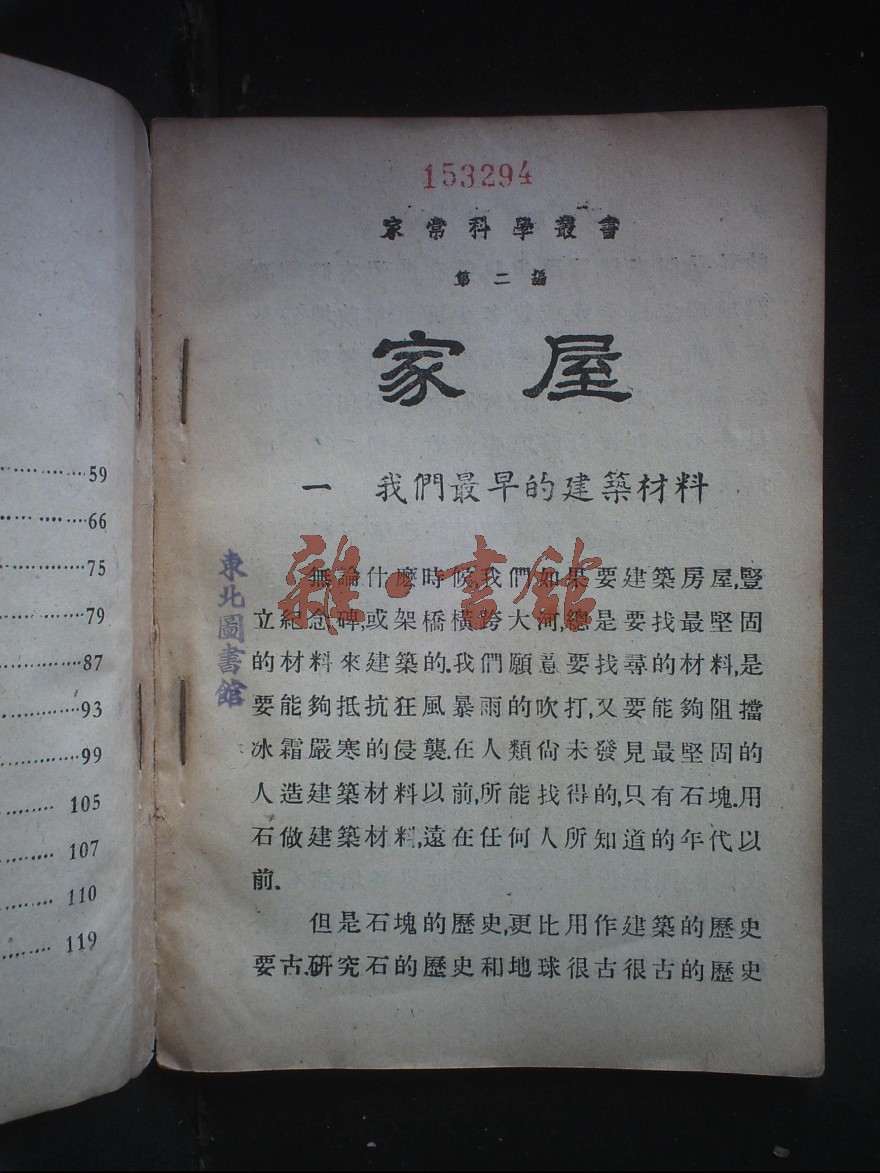 59
66
75
79
87
93
99
105
107
110
119
153294
家常科學叢書
第二編
家屋
一 我們最早的建築材料
東北圖書館
雜·書館
無論什麼時候,我們如果要建築房屋,豎
立紀念碑,或架橋橫跨大河,總是要找最堅固
的材料來建築的.我們願意要找尋的材料,是
要能夠抵抗狂風暴雨的吹打,又要能夠阻擋
冰霜嚴寒的侵襲.在人類尙未發見最堅固的
人造建築材料以前,所能找得的,只有石塊.用
石做建築材料,遠在任何人所知道的年代以
前.
但是石塊的歷史,更比用作建築的歷史
要古.硏究石的歷史和地球很古很古的歷史